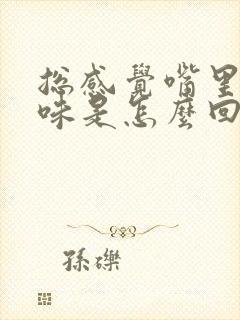 总感覺嘴里
味是怎麼回
孫礫